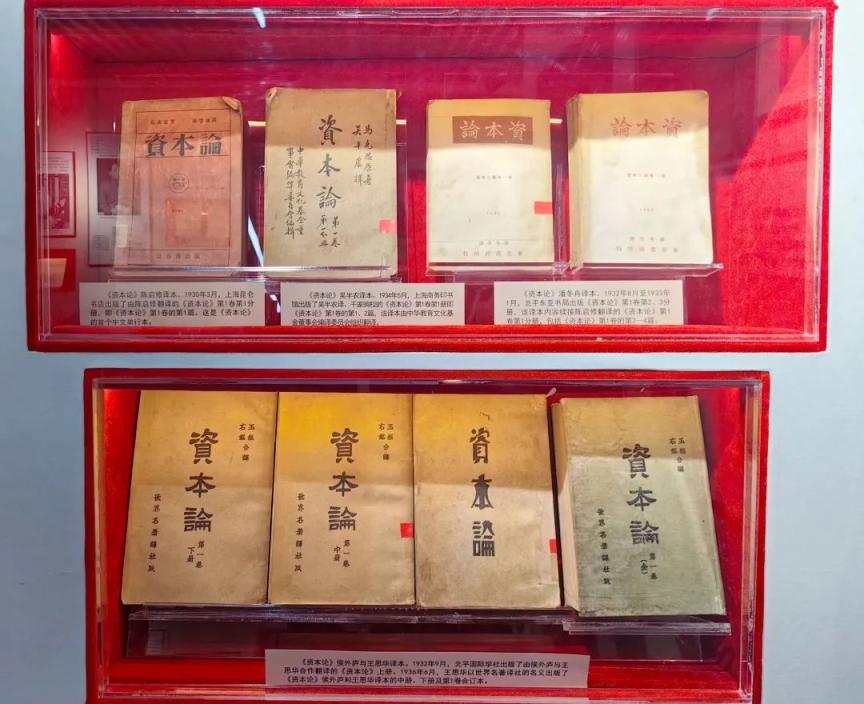 資本論
馬克思原著
吳半農譯
資本論
第一卷
第一冊
中華教育文化基金董
事會編譯委員會編輯
論本資
論本資
《资本论》陈启修译本。1930年3月，上海昆仑
书店出版了由陈启修翻译的《资本论》第1卷第1分
册，即《资本论》第1卷的第1篇。这是《资本论》
的首个中文单行本。
《资本论》吴半农译本。1934年5月，上海商务印书
馆出版了吴半农译、千家驹校的《资本论》第1卷第1册即
《资本论》第1卷的第1、2篇。该译本由中华教育文化基
金董事会编译委员会组织翻译。
《资本论》潘冬舟译本。1932年8月至1933年
1月，北平东亚书局出版《资本论》第1卷第2、3分
册，该译本内容续接陈启修翻译的《资本论》第1
卷第1分册，包括《资本论》第1卷的第2—4篇。
玉枢
右铭合譯
資本論
第一卷
下册
世界名著譯社版
玉枢
右铭合譯
資本論
第一卷
中册
世界名著譯社版
資本論
玉枢
右铭合譯
資本論
第一卷
(全)
世界名著譯社版
《资本论》侯外庐与王思华译本。1932年9月，北平国际学社出版了由侯外庐与王
思华合作翻译的《资本论》上册。1936年6月，王思华以世界名著译社的名义出版了
《资本论》侯外庐和王思华译本的中册、下册及第1卷合订本。